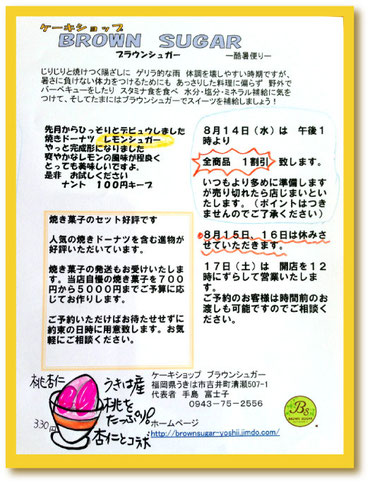 ケーキショップ
BROWN SUGAR
ブラウンシュガー ー酷暑便りー
じりじりと焼けつく陽ざしに ゲリラ的な雨 体調を壊しやすい時期ですが、
暑さに負けない体力をつけるためにも あっさりした料理に偏らず 野外で
バーベキューをしたり スタミナ食を食べ 水分・塩分・ミネラル補給に気を
つけて、そしてたまにはブラウンシュガーでスイーツを補給しましょう！
先月からひっそりとデビュウしました
焼きドーナツ レモンシュガー
やっと完成形になりました
爽やかなレモンの風味が程良く
とっても美味しいですよ。
是非 お試しください
ナント 100円キープ
焼き菓子のセット好評です
人気の焼きドーナツを含む進物が
好評いただいています。
焼き菓子の発送もお受けいたしま
す。当店自慢の焼き菓子を700
円から5000円までご予算に応
じてお作りします。
ご予約いただけばお待たせせずに
約束の日時に用意致します。お気
軽にご相談ください。
8月14日（水）は 午後1
時より
全商品 1割引 致します。
いつもより多めに準備します
が売り切れたら店じまいとい
たします。（ポイントはつき
ませんのでご了承ください）
8月15日、16日は休みさ
せていただきます。
17日（土）は 開店を12
時にずらして営業いたしま
す。
ご予約のお客様は時間前のお
渡しも可能ですのでご相談く
ださい。
桃杏仁
330円
うきは産
桃を
たっぷり。
杏仁とコラボ
ケーキショップ ブラウンシュガー
福岡県うきは市吉井町清瀬507-1
代表者 手島 富士子
0943-75-2556
ホームページ
http://brownsugar-yoshii.jimdo.com/
BS
BROWN SUGAR